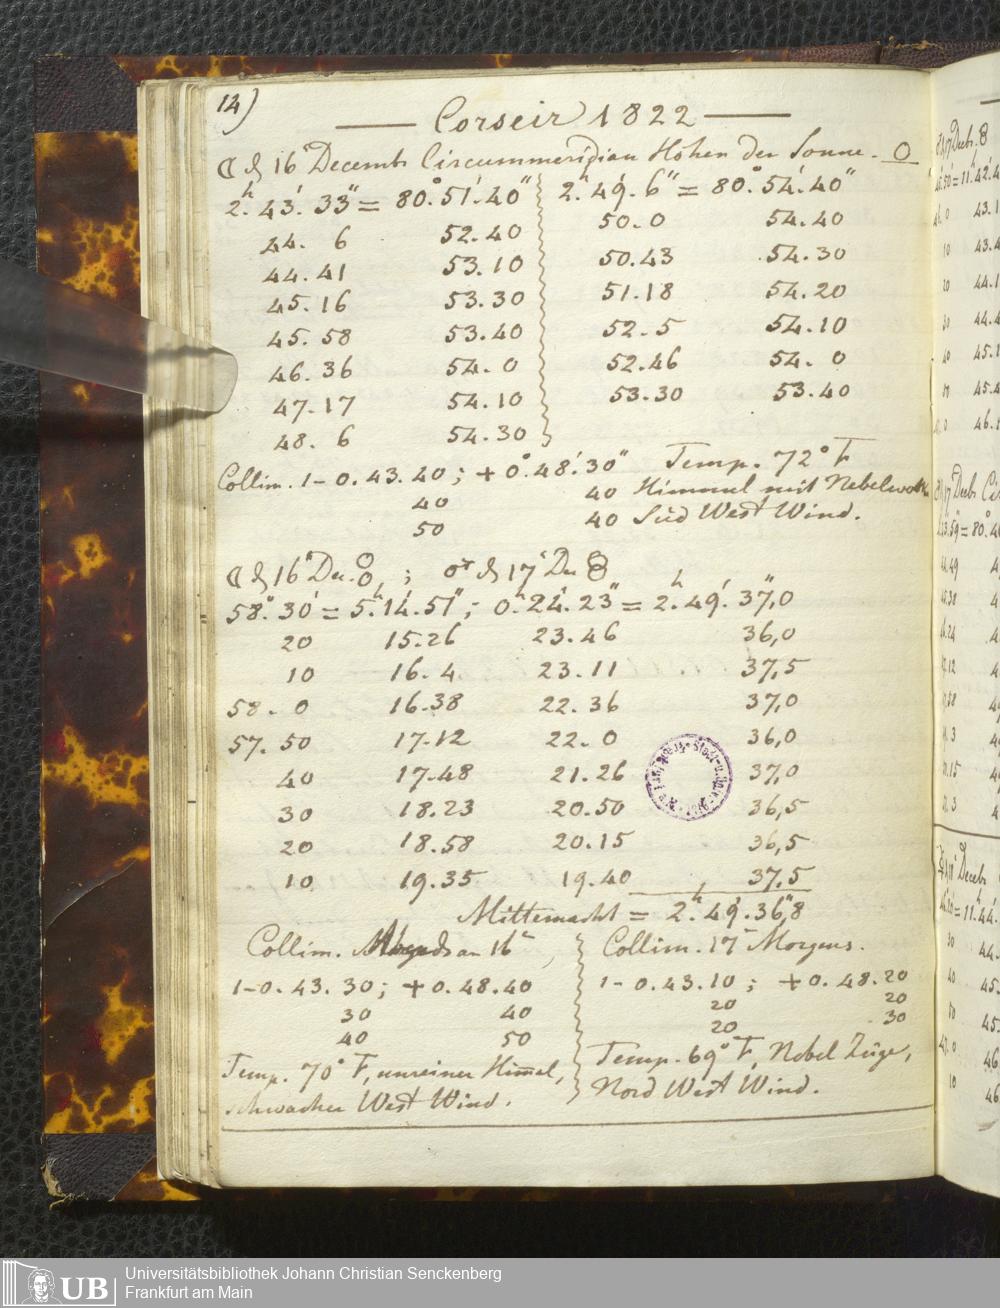 14)
Corseir 1822
☾ d 16n Decemb. Circummeridian Höhen der Sonne. O
2h. 43'. 33" = 80°. 51'. 40"   2h. 49'. 6" = 80°. 54'. 40"
44. 6   52. 40   50. 0   54. 40
44. 41   53. 10   50. 43   54. 30
45. 16   53. 30   51. 18   54. 20
45. 58   53. 40   52. 5   54. 10
46. 36   54. 0   52. 46   54. 0
47. 17   54. 10   53. 30   53. 40
48. 6   54. 30
Collim. 1- 0. 43. 40; + 0°. 48'. 30"   Temp. 72° F
40   40   Himmel mit Nebelwolken
50   40   Süd West Wind.
☾ d 16n Dec. ; ♂ d 17n Dec
58°. 30' = 5h. 14'. 51"; 0h. 24'. 23" = 2h. 49'. 37",0
20   15. 26   23. 46   36,0
10   16. 4   23. 11   37,5
58. 0   16. 38   22. 36   37,0
57. 50   17. 12   22. 0   36,0
40   17. 48   21. 26   37,0
30   18. 23   20. 50   36,5
20   18. 58   20. 15   36,5
10   19. 35   19. 40   37,5
Mitternacht = 2h. 49'. 36",8
Collim. Abends an 16n
1- 0. 43. 30; + 0. 48. 40
30   40
40   50
Temp. 70° F, unreiner Himmel,
schwacher West Wind.
Collim. 17n Morgens.
1- 0. 43. 10; + 0. 48. 20
20   20
20   30
Temp. 69° F, Nebel Züge,
Nord West Wind.
UB
Universitätsbibliothek Johann Christian Senckenberg
Frankfurt am Main